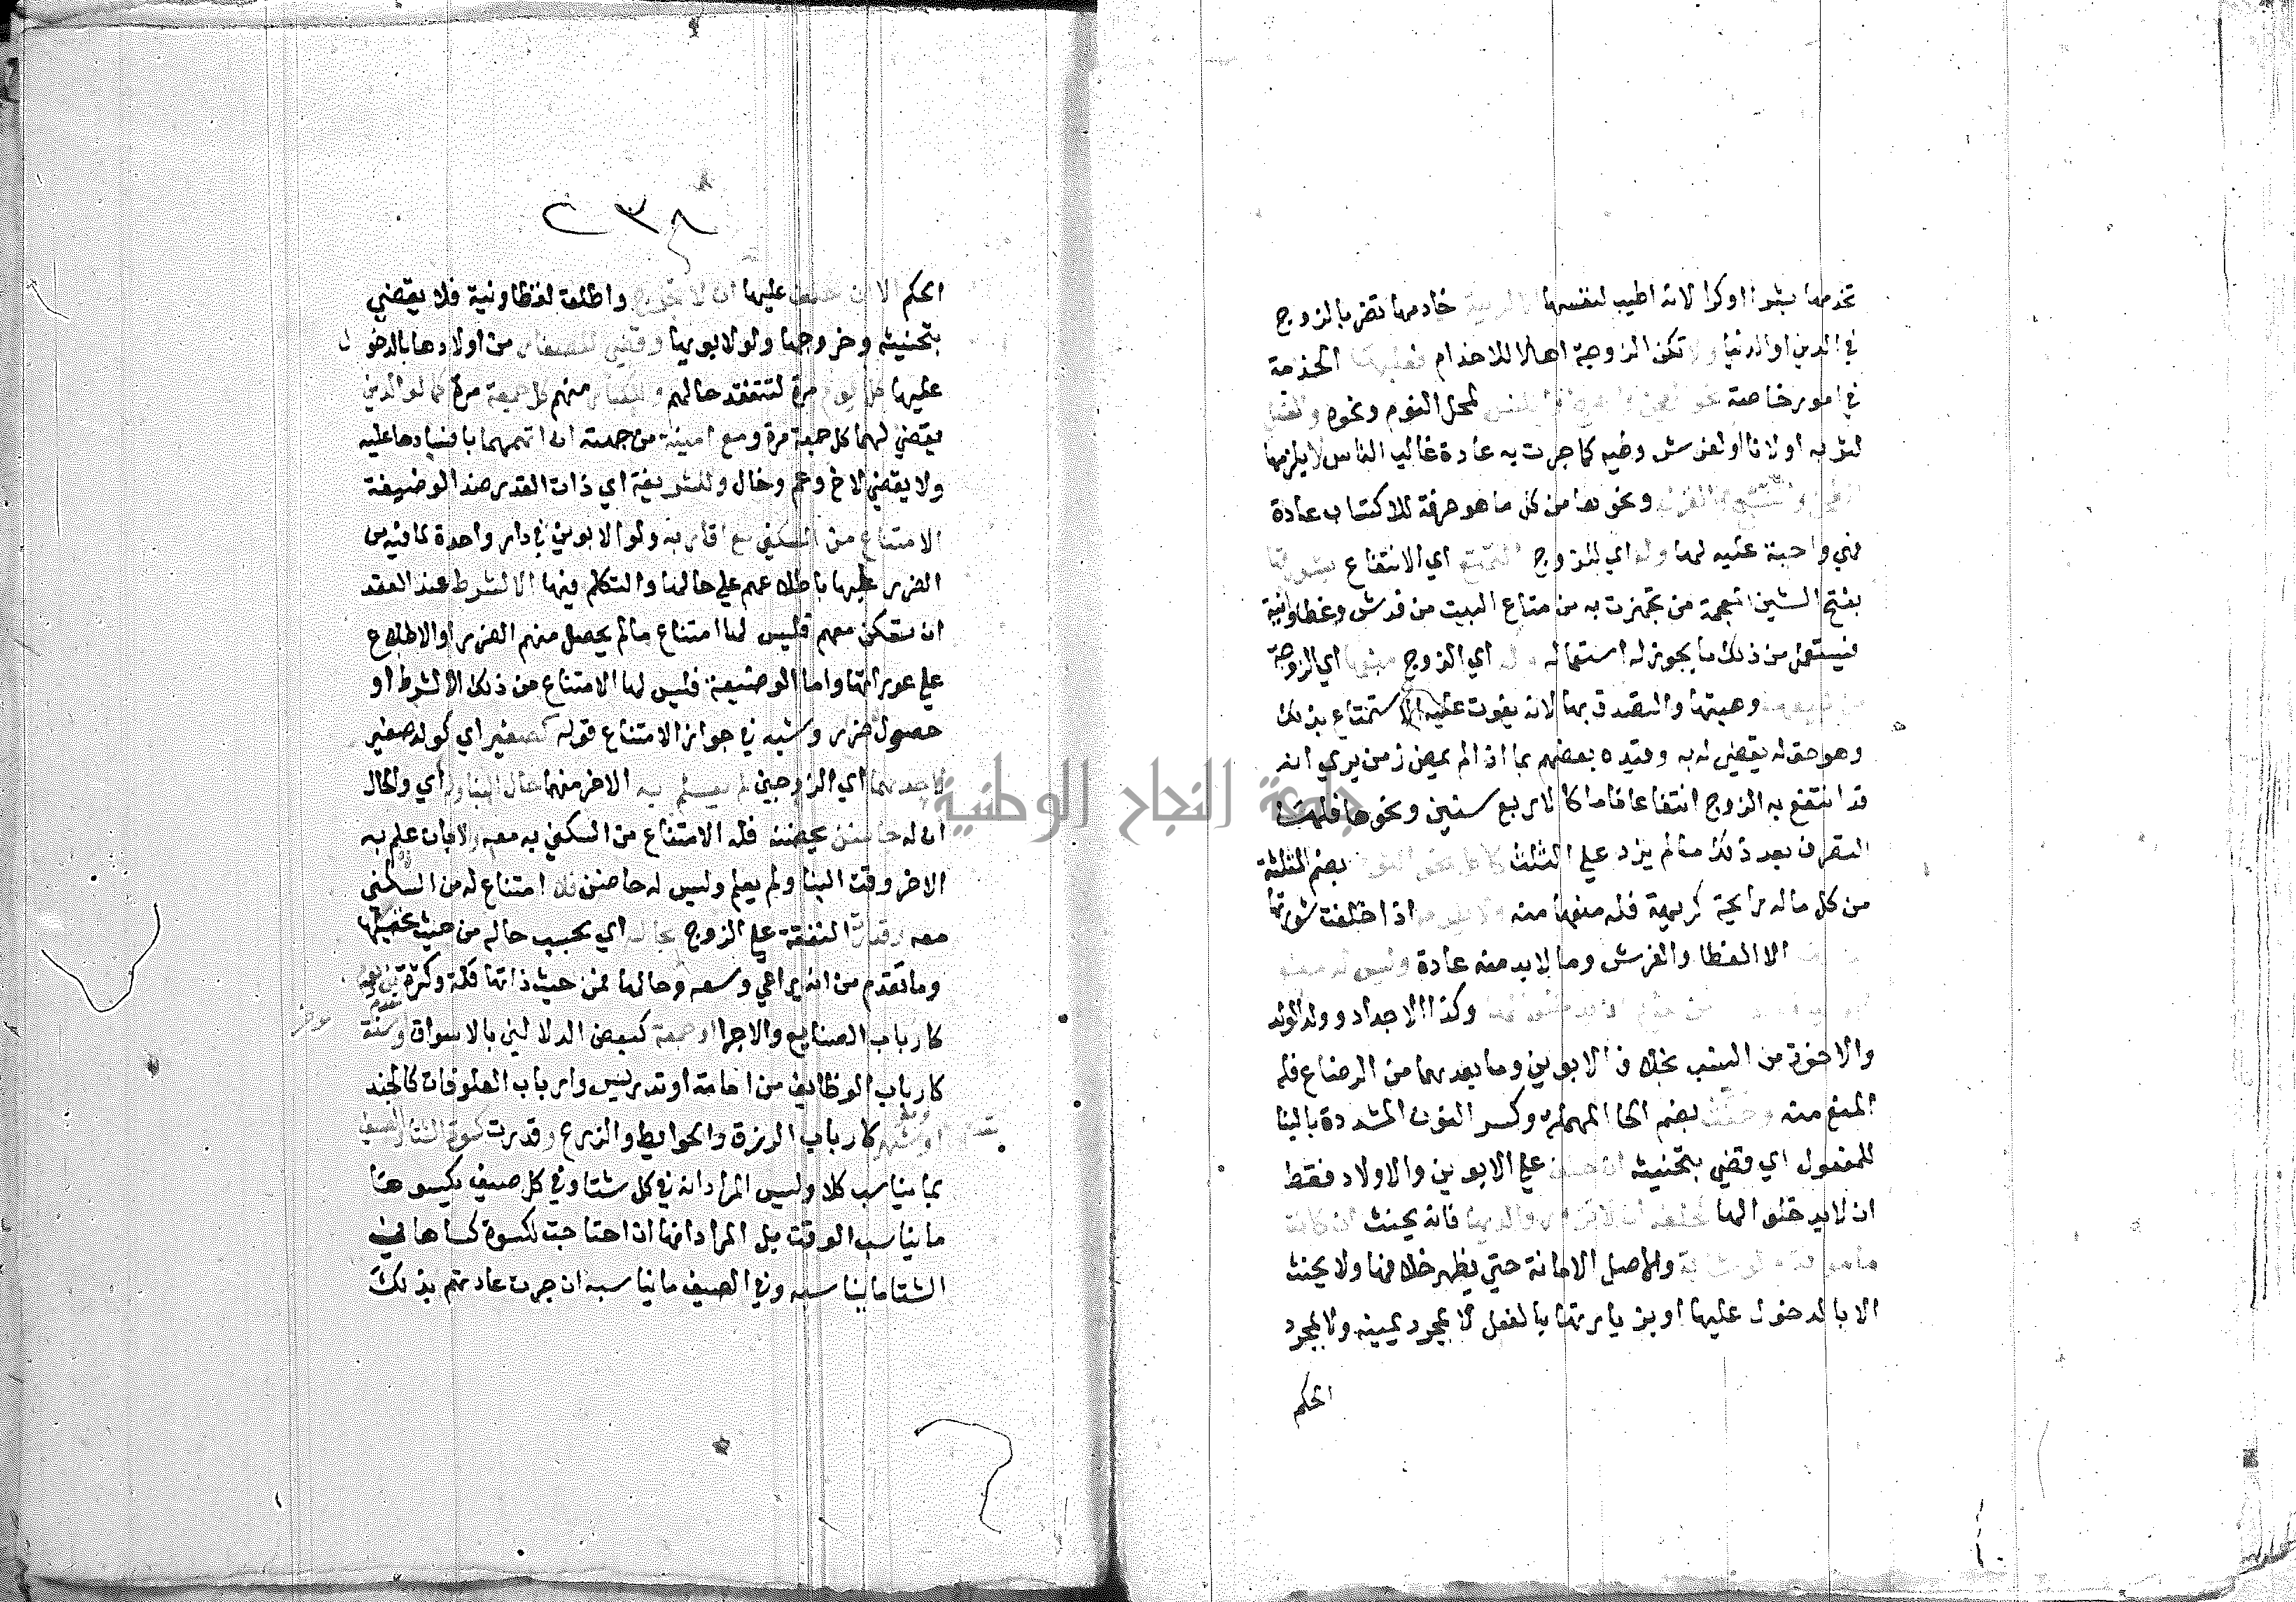 تخدمها بشرا اوكرا لانه اطيب لنفسها خادمها تضر بالزوج
في الدين او الدنيا ولا تكن الزوجة اهلا للاخدام فعليها الخدمة
في امور خاصة لمحل النوم ونحوه
لشربه او لانا اولغرش وضيه كما جرت به عادة غالب الناس لا يلزمها
ونحوها من كل ما هو حرفة للاكتساب عادة
فهي واجبة عليه لها وله اي للزوج التمتع اي الانتفاع بشورتها
بفتح الشين المعجمة من تجهزت به من متاع البيت من فرش وغطا وانية
فيستعمل من ذلك ما يجوز له استعماله وله اي الزوج منعها اي الزوجة
من بيعها وهبتها والتصدق بها لانه يفوت عليه الاستمتاع بذلك
وهو حق له يقضى له به وقيده بعضهم بما اذا لم يمض زمن يري انه
قد انتفع به الزوج انتفاعا تاما كالاربع سنين ونحوها فلها
التصرف بعد ذلك ما لم يزد علي الثلث كاكل نحو الثوم بضم المثلثة
من كل ماله رايحة كريهة فله منعها منه ولا يلزمه اذا خلقت شورتها
الا الغطا والفرش وما لابد منه عادة وليس له منع
وكذا الاجداد وولد الولد
والاخوة من النسب بخلاف الابوين وما بعدهما من الرضاع فله
المنع منه وحنث بضم الحا المهملة وكسر النون المشددة بالبنا
للمفعول اي وقضي بتحنيثه ان حلف علي الابوين والاولاد فقط
ان لا يدخلوا لها كحلفه ان لا تزور والديها فانه يحنث ان كانت
مامونة والاصل الامانة حتي يظهر خلافها ولا يحنث
الا بالدخول عليها او بزيارتها بالفعل لا بمجرد يمينه ولا بمجرد
الحكم
٢٣٨
الحكم الا ان حلف عليها ان لا تخرج واطلق لفظا ونية فلا يقضي
بتحنيثه وخروجها ولو لابويها وقضي للصغار من اولادها بالدخول
عليها كل يوم مرة لتتفقد حالهم وللكبار منهم كل جمعة مرة كالوالدين
يقضي لهما كل جمعة مرة ومع امينة من جهته ان اتهمهما بافسادها عليه
ولا يقضي لاخ وعم وخال وللشريفة اي ذات القدر ضد الوضيعة
الامتناع من السكني مع اقاربه ولو الابوين في دار واحدة لما فيه من
الضرر عليها باطلاعهم علي حالها والتكلم فيها الا لشرط عند العقد
ان تسكن معهم فليس لها امتناع ما لم يحصل منهم الضرر او الاطلاع
علي عوراتها واما الوضيعة فليس لها الامتناع من ذلك الا لشرط او
حصول ضرر وشبه في جواز الامتناع قوله كصغير اي كولد صغير
لاحدهما اي الزوجين لم يعلم به الاخر منهما حال البنا وله اي والحال
ان له حاضن يحضنه فله الامتناع من السكني به معه والا بان علم به
الاخر وقت البنا ولم يعلم وليس له حاضن فلا امتناع له من السكني
معه وقدرت النفقة علي الزوج بحاله اي بحسب حاله من حيث تحصيلها
وما تقدم من انه يراعي وسعه وحالها فمن حيث ذاتها قلة وكثرة
كارباب الصنايع والاجرا او جمعة كبعض الدلالين بالاسواق
كارباب الوظايف من امامة او تدريس وارباب العلوفات كالجند
كارباب الرزق والحوايط والزرع وقدرت كسوة الشتا والصيف
بما يناسب كلا وليس المراد انه في كل شتا وفي كل صيف يكسوها
ما يناسب الوقت بل المراد انها اذا احتاجت لكسوة كساها في
الشتا ما يناسبه وفي الصيف ما يناسبه ان جرت عادتهم بذلك
جامعة النجاح الوطنية